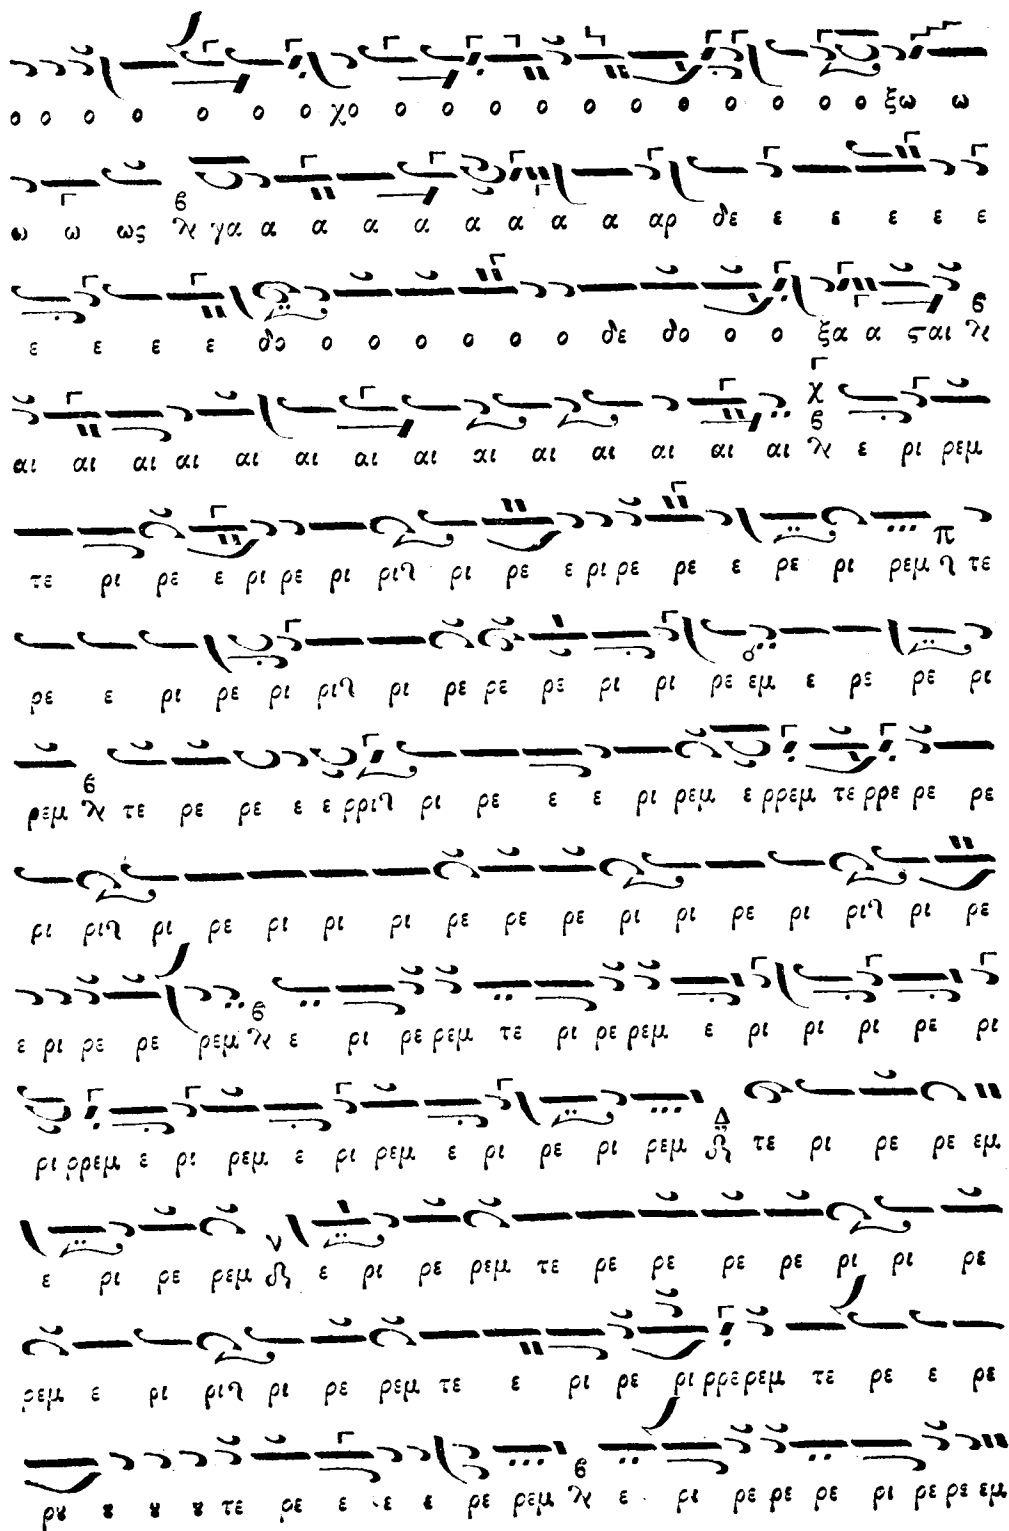 ο ο ο ο ο ο ο χο ο ο ο ο ο ο ο ο ο ο ο ο ξω ω
ω ω ως γα α α α α α α α α αρ δε ε ε ε ε ε
ε ε ε ε δο ο ο ο ο ο ο δε δο ο ο ξα α ςαι
αι αι αι αι αι αι αι αι αι αι αι αι αι αι ε ρι ρεμ
τε ρι ρε ε ρι ρε ρι ριζ ρι ρε ε ρι ρε ρε ε ρε ρι ρεμ π τε
ρε ε ρι ρε ρι ριζ ρι ρε ρε ρε ρι ρι ρε εμ ε ρε ρε ρι
ρεμ τε ρε ρε ε ε ρριζ ρι ρε ε ε ρι ρεμ ε ρρεμ τε ρρε ρε ρε
ρι ριζ ρι ρε ρι ρι ρι ρε ρε ρε ρι ρι ρε ρι ριζ ρι ρε
ε ρι ρε ρε ρεμ ε ρι ρε ρεμ τε ρι ρε ρεμ ε ρι ρι ρι ρε ρι
ρι ρρεμ ε ρι ρεμ ε ρι ρεμ ε ρι ρε ρι ρεμ Δ τε ρι ρε ρε εμ
ε ρι ρε ρεμ ν ε ρι ρε ρεμ τε ρε ρε ρε ρε ρι ρι ρε
ρεμ ε ρι ριζ ρι ρε ρεμ τε ε ρι ρε ρι ρρερεμ τε ρε ε ρε
ρȣ ȣ ȣ ȣ τε ρε ε ε ε ρε ρεμ ε ρι ρε ρε ρε ρι ρε ρε εμ